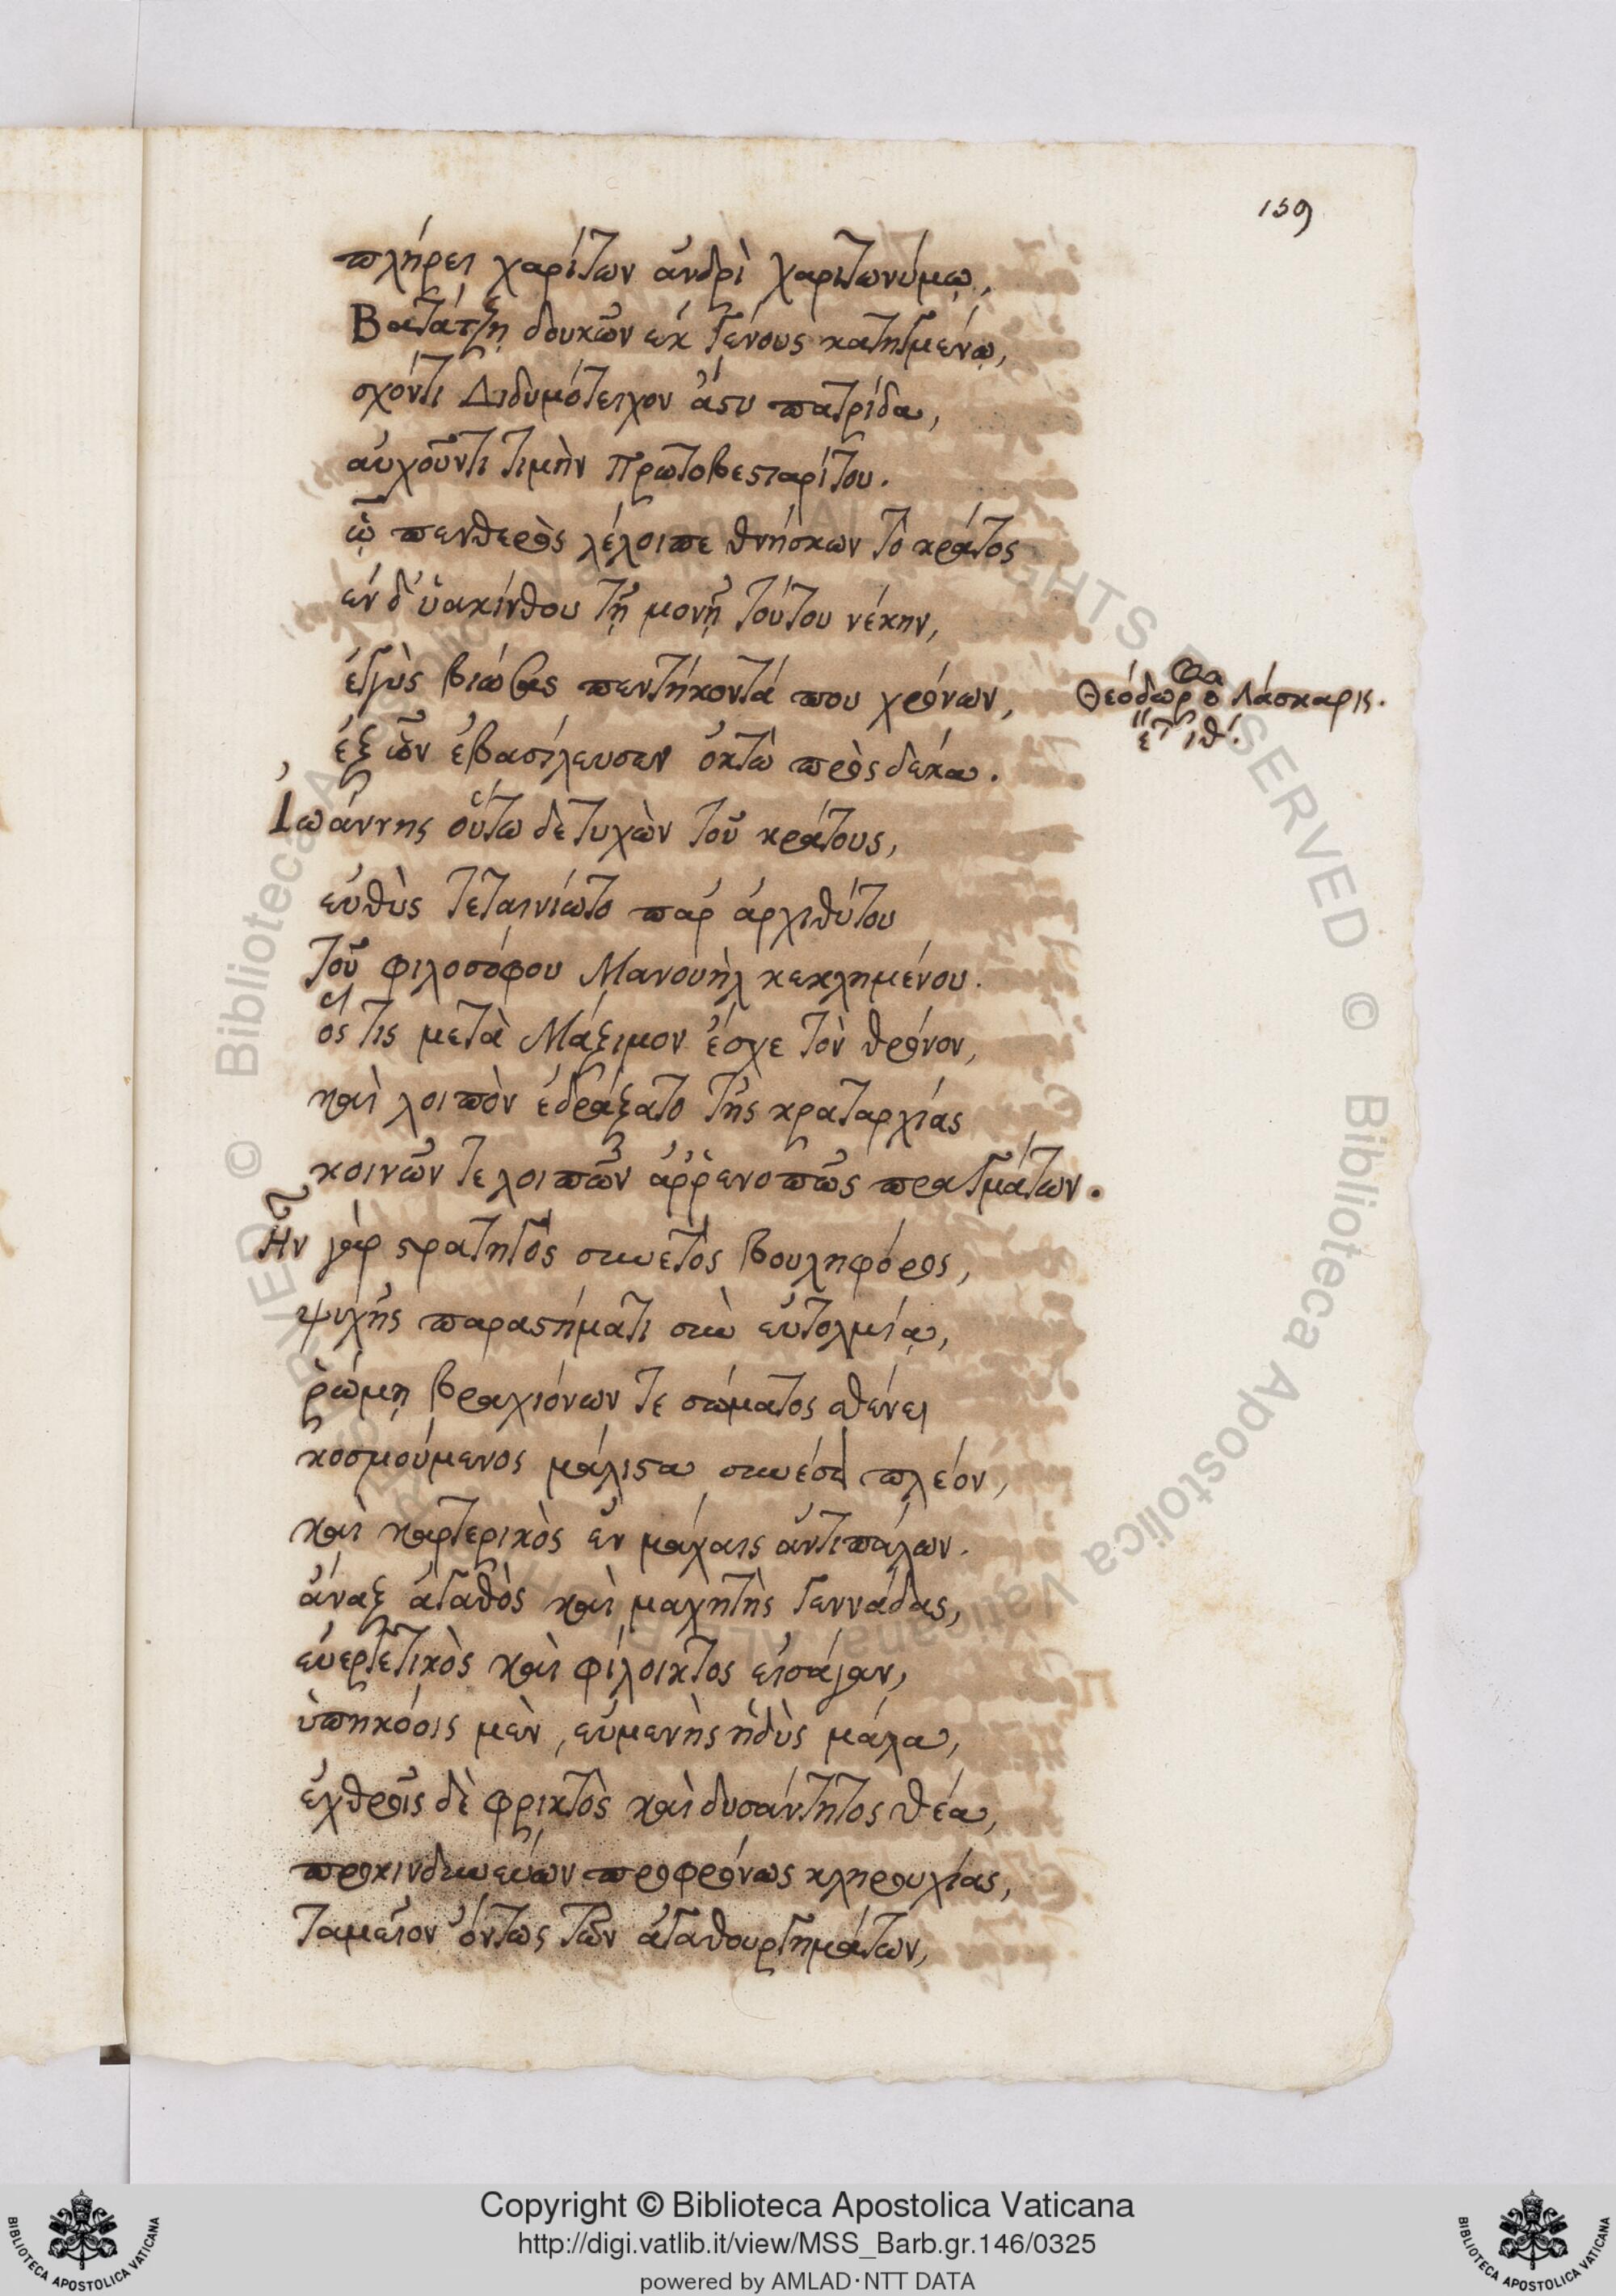 159
πλήρει χαρίτων ἀνδρὶ χαριτωνύμῳ,
Βατάτζῃ δουκῶν ἐκ γένους κατηγμένῳ,
σχόντι Διδυμότειχον ἄστυ πατρίδα,
αὐχοῦντι τιμὴν πρωτοβεστιαρίτου.
ᾧ πενθερὸς λέλοιπε θνήσκων τὸ κράτος
ἐν δ' ὑακίνθου τῇ μονῇ τούτου νέκην,
ἐγγὺς βιώσας πεντήκοντά που χρόνων,
Θεόδωρος ὁ Λάσκαρις.
ἔτη ιθ.
ἐξ ὧν ἐβασίλευσεν ὀκτὼ πρὸς δέκα.
Ἰωάννης οὕτω δὲ τυχὼν τοῦ κράτους,
εὐθὺς τεταινίωτο παρ' ἀρχιθύτου
τοῦ φιλοσόφου Μανουὴλ κεκλημένου.
ὅς τις μετὰ Μάξιμον ἔσχε τὸν θρόνον,
καὶ λοιπὸν ἐδράξατο τῆς κραταρχίας
κοινῶν τε λοιπῶν ἀῤῥενοπῶς πραγμάτων.
Ἦν γὰρ στρατηγὸς συνετὸς βουληφόρος,
ψυχῆς παραστήματι σὺν εὐτολμίᾳ,
ῥώμῃ βραχιόνων τε σώματος σθένει
κοσμούμενος μάλιστα συνέσει πλέον,
καὶ καρτερικὸς ἐν μάχαις ἀντιπάλων.
ἄναξ ἀγαθὸς καὶ μαχητὴς γεννάδας,
εὐεργετικὸς καὶ φίλοικτος εἰσάγαν,
ὑπηκόοις μὲν, εὐμενὴς ἡδὺς μάλα,
ἐχθροῖς δὲ φρικτὸς καὶ δυσάντητος θέα,
προκινδυνεύων προφρόνως κληρουχίας,
ταμεῖον ὄντως τῶν ἀγαθουργημάτων,
Copyright © Biblioteca Apostolica Vaticana
http://digi.vatlib.it/view/MSS_Barb.gr.146/0325
powered by AMLAD·NTT DATA